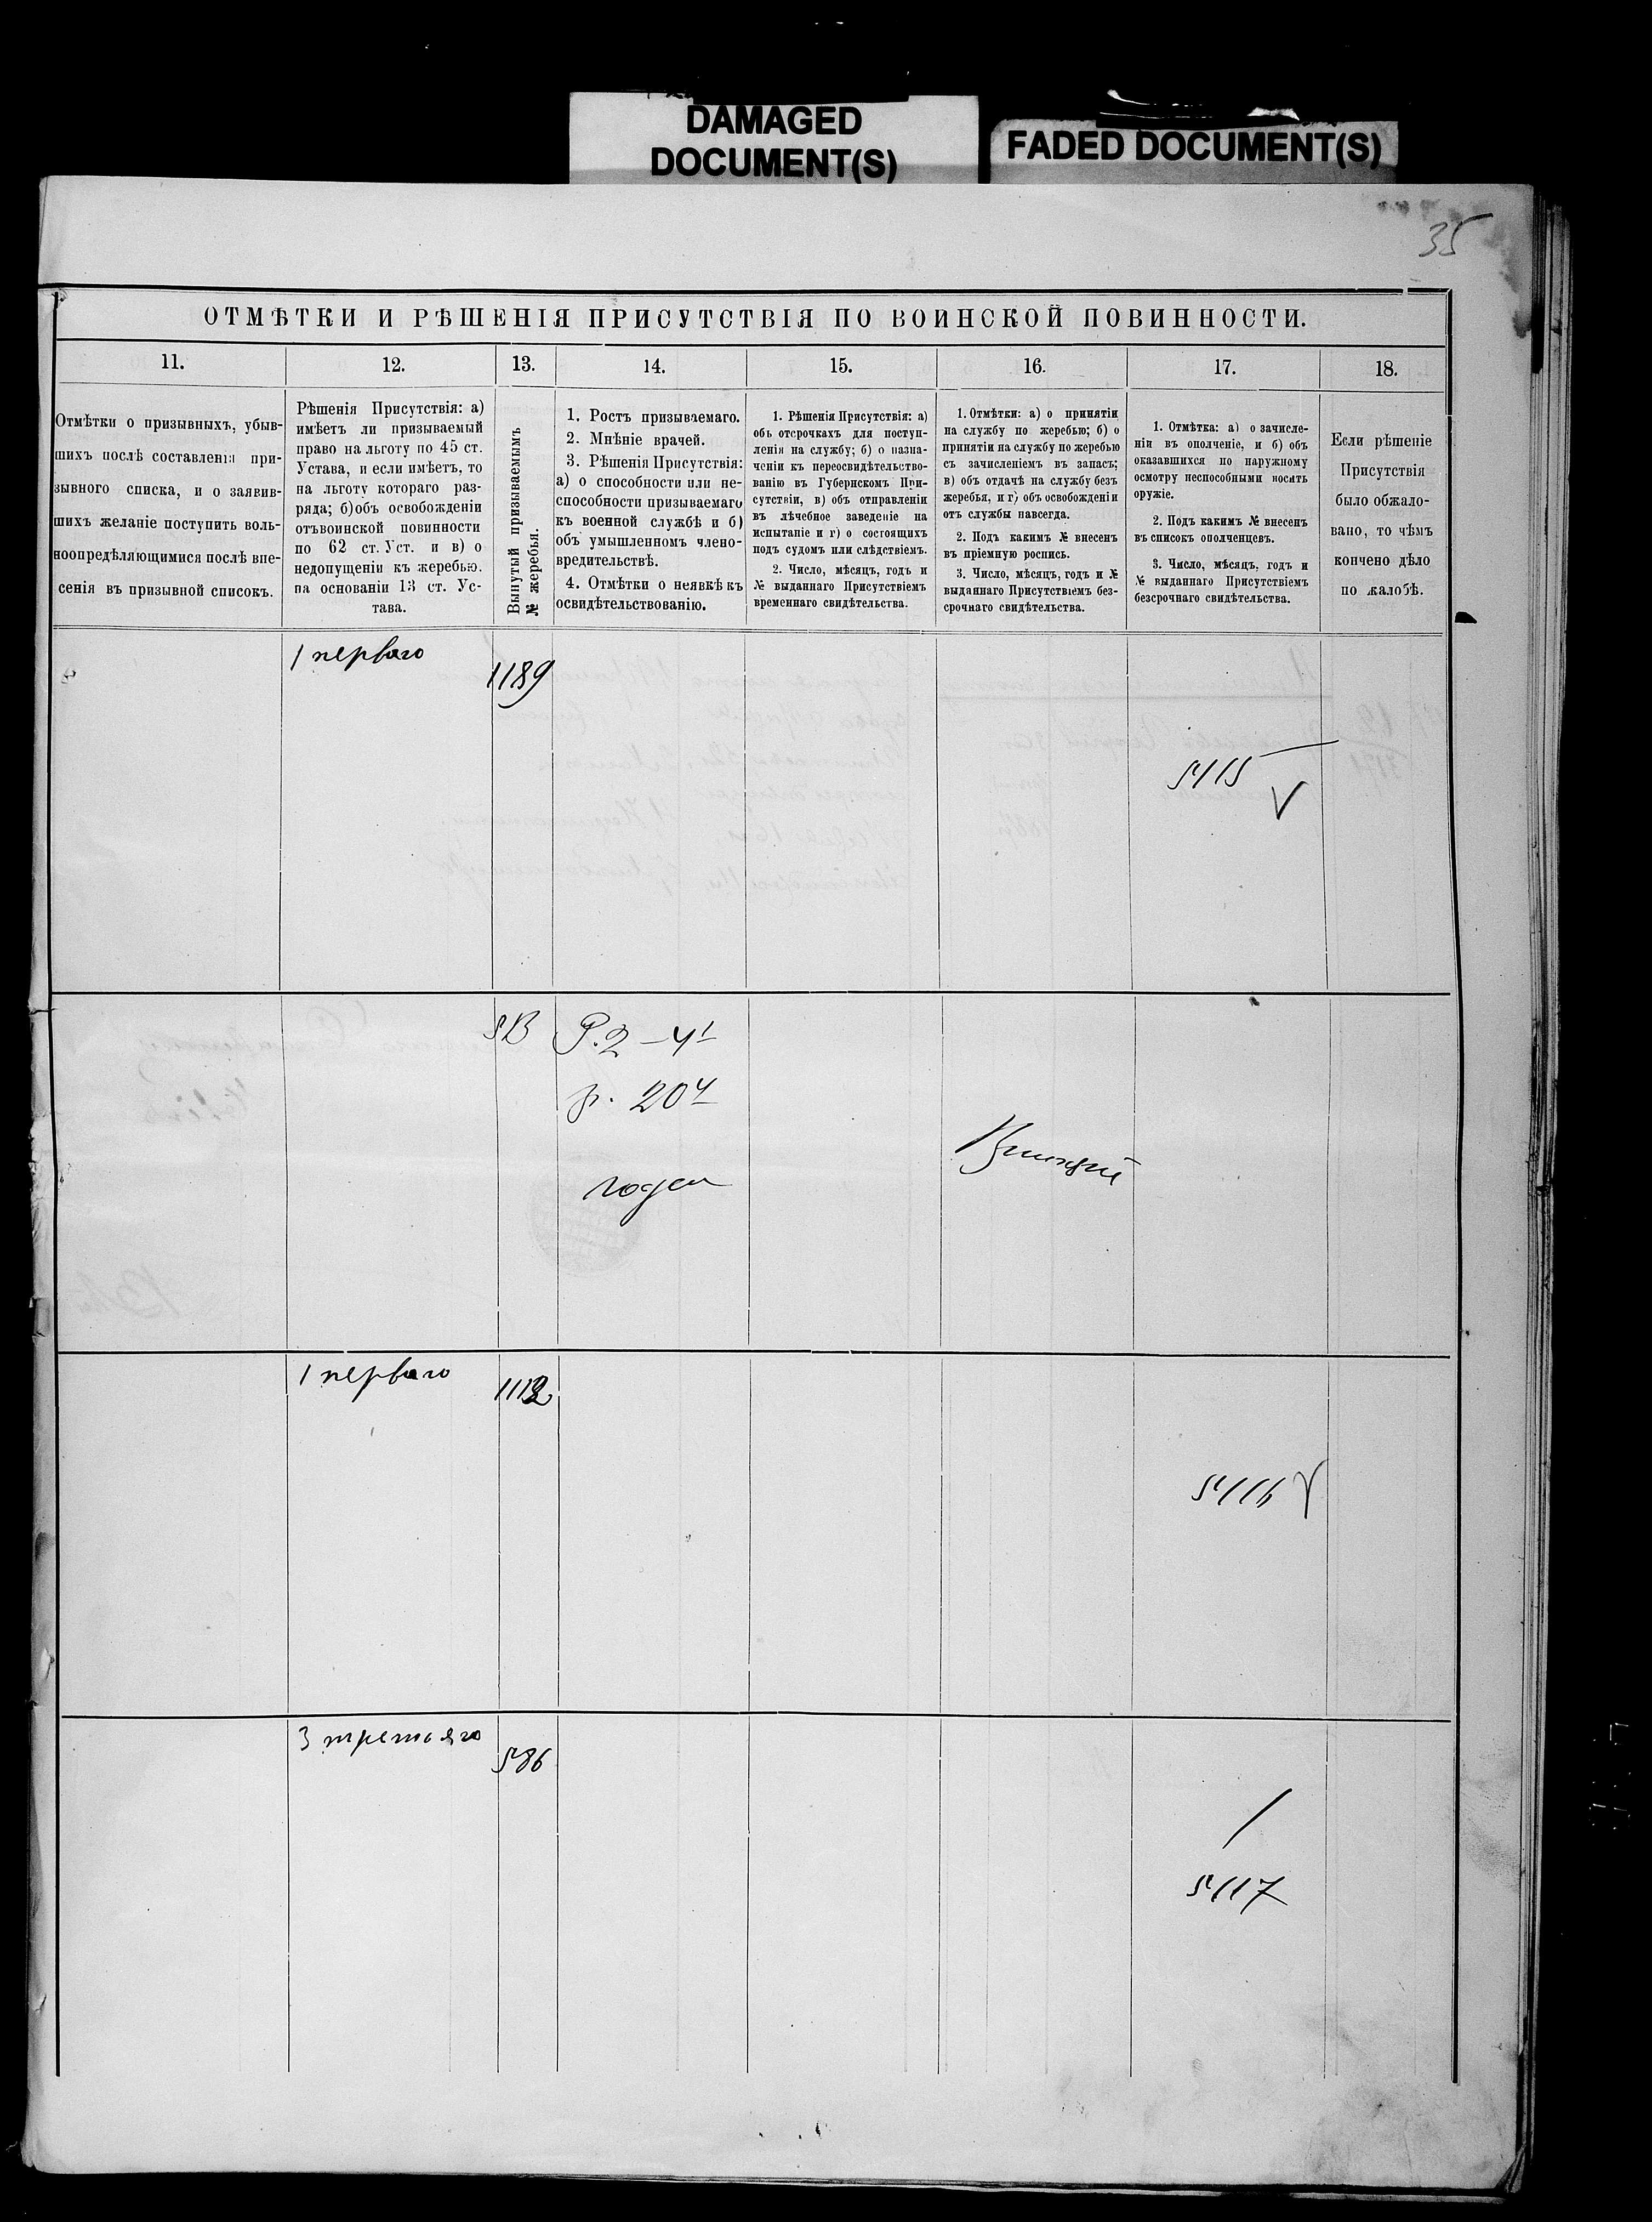 DAMAGED
DOCUMENT(S)
FADED DOCUMENT(S)
35
ОТМѢТКИ И РѢШЕНІЯ ПРИСУТСТВІЯ ПО ВОИНСКОЙ ПОВИННОСТИ.
11.
12.
13.
14.
15.
16.
17.
18.
Отмѣтки о призывныхъ, убыв-
шихъ послѣ составленія при-
зывного списка, и о заявив-
шихъ желаніе поступить воль-
ноопредѣляющимися послѣ вне-
сенія въ призывной списокъ.
Рѣшенія Присутствія: а)
имѣетъ ли призываемый
право на льготу по 45 ст.
Устава, и если имѣетъ, то
на льготу котораго раз-
ряда; б) объ освобожденіи
отъ воинской повинности
по 62 ст. Уст. и в) о
недопущеніи къ жеребью.
на основаніи 13 ст. Ус-
тава.
Вынутый призываемымъ
№ жеребья.
1. Ростъ призываемаго.
2. Мнѣніе врачей.
3. Рѣшенія Присутствія:
а) о способности или не-
способности призываемаго
къ военной службѣ и б)
объ умышленномъ члено-
вредительствѣ.
4. Отмѣтки о неявкѣ къ
освидѣтельствованію.
1. Рѣшенія Присутствія: а)
объ отсрочкахъ для поступ-
ленія на службу; б) о назна-
ченіи къ переосвидѣтельство-
ванію въ Губернскомъ При-
сутствіи, в) объ отправленіи
въ лѣчебное заведеніе на
испытаніе и г) о состоящихъ
подъ судомъ или слѣдствіемъ.
2. Число, мѣсяцъ, годъ и
№ выданнаго Присутствіемъ
временнаго свидѣтельства.
1. Отмѣтки: а) о принятіи
на службу по жеребью; б) о
принятіи на службу по жеребью
съ зачисленіемъ въ запасъ;
в) объ отдачѣ на службу безъ
жеребья, и г) объ освобожденіи
отъ службы навсегда.
2. Подъ какимъ № внесенъ
въ пріемную роспись.
3. Число, мѣсяцъ, годъ и №
выданнаго Присутствіемъ без-
срочнаго свидѣтельства.
1. Отмѣтка: а) о зачисле-
ніи въ ополченіе, и б) объ
оказавшихся по наружному
осмотру неспособными носить
оружіе.
2. Подъ какимъ № внесенъ
въ списокъ ополченцевъ.
3. Число, мѣсяцъ, годъ и
№ выданнаго Присутствіемъ
безсрочнаго свидѣтельства.
Если рѣшеніе
Присутствія
было обжало-
вано, то чѣмъ
кончено дѣло
по жалобѣ.
1 перваго
1189
5415
годен
1 перваго
5416
3 третьяго
586
5417